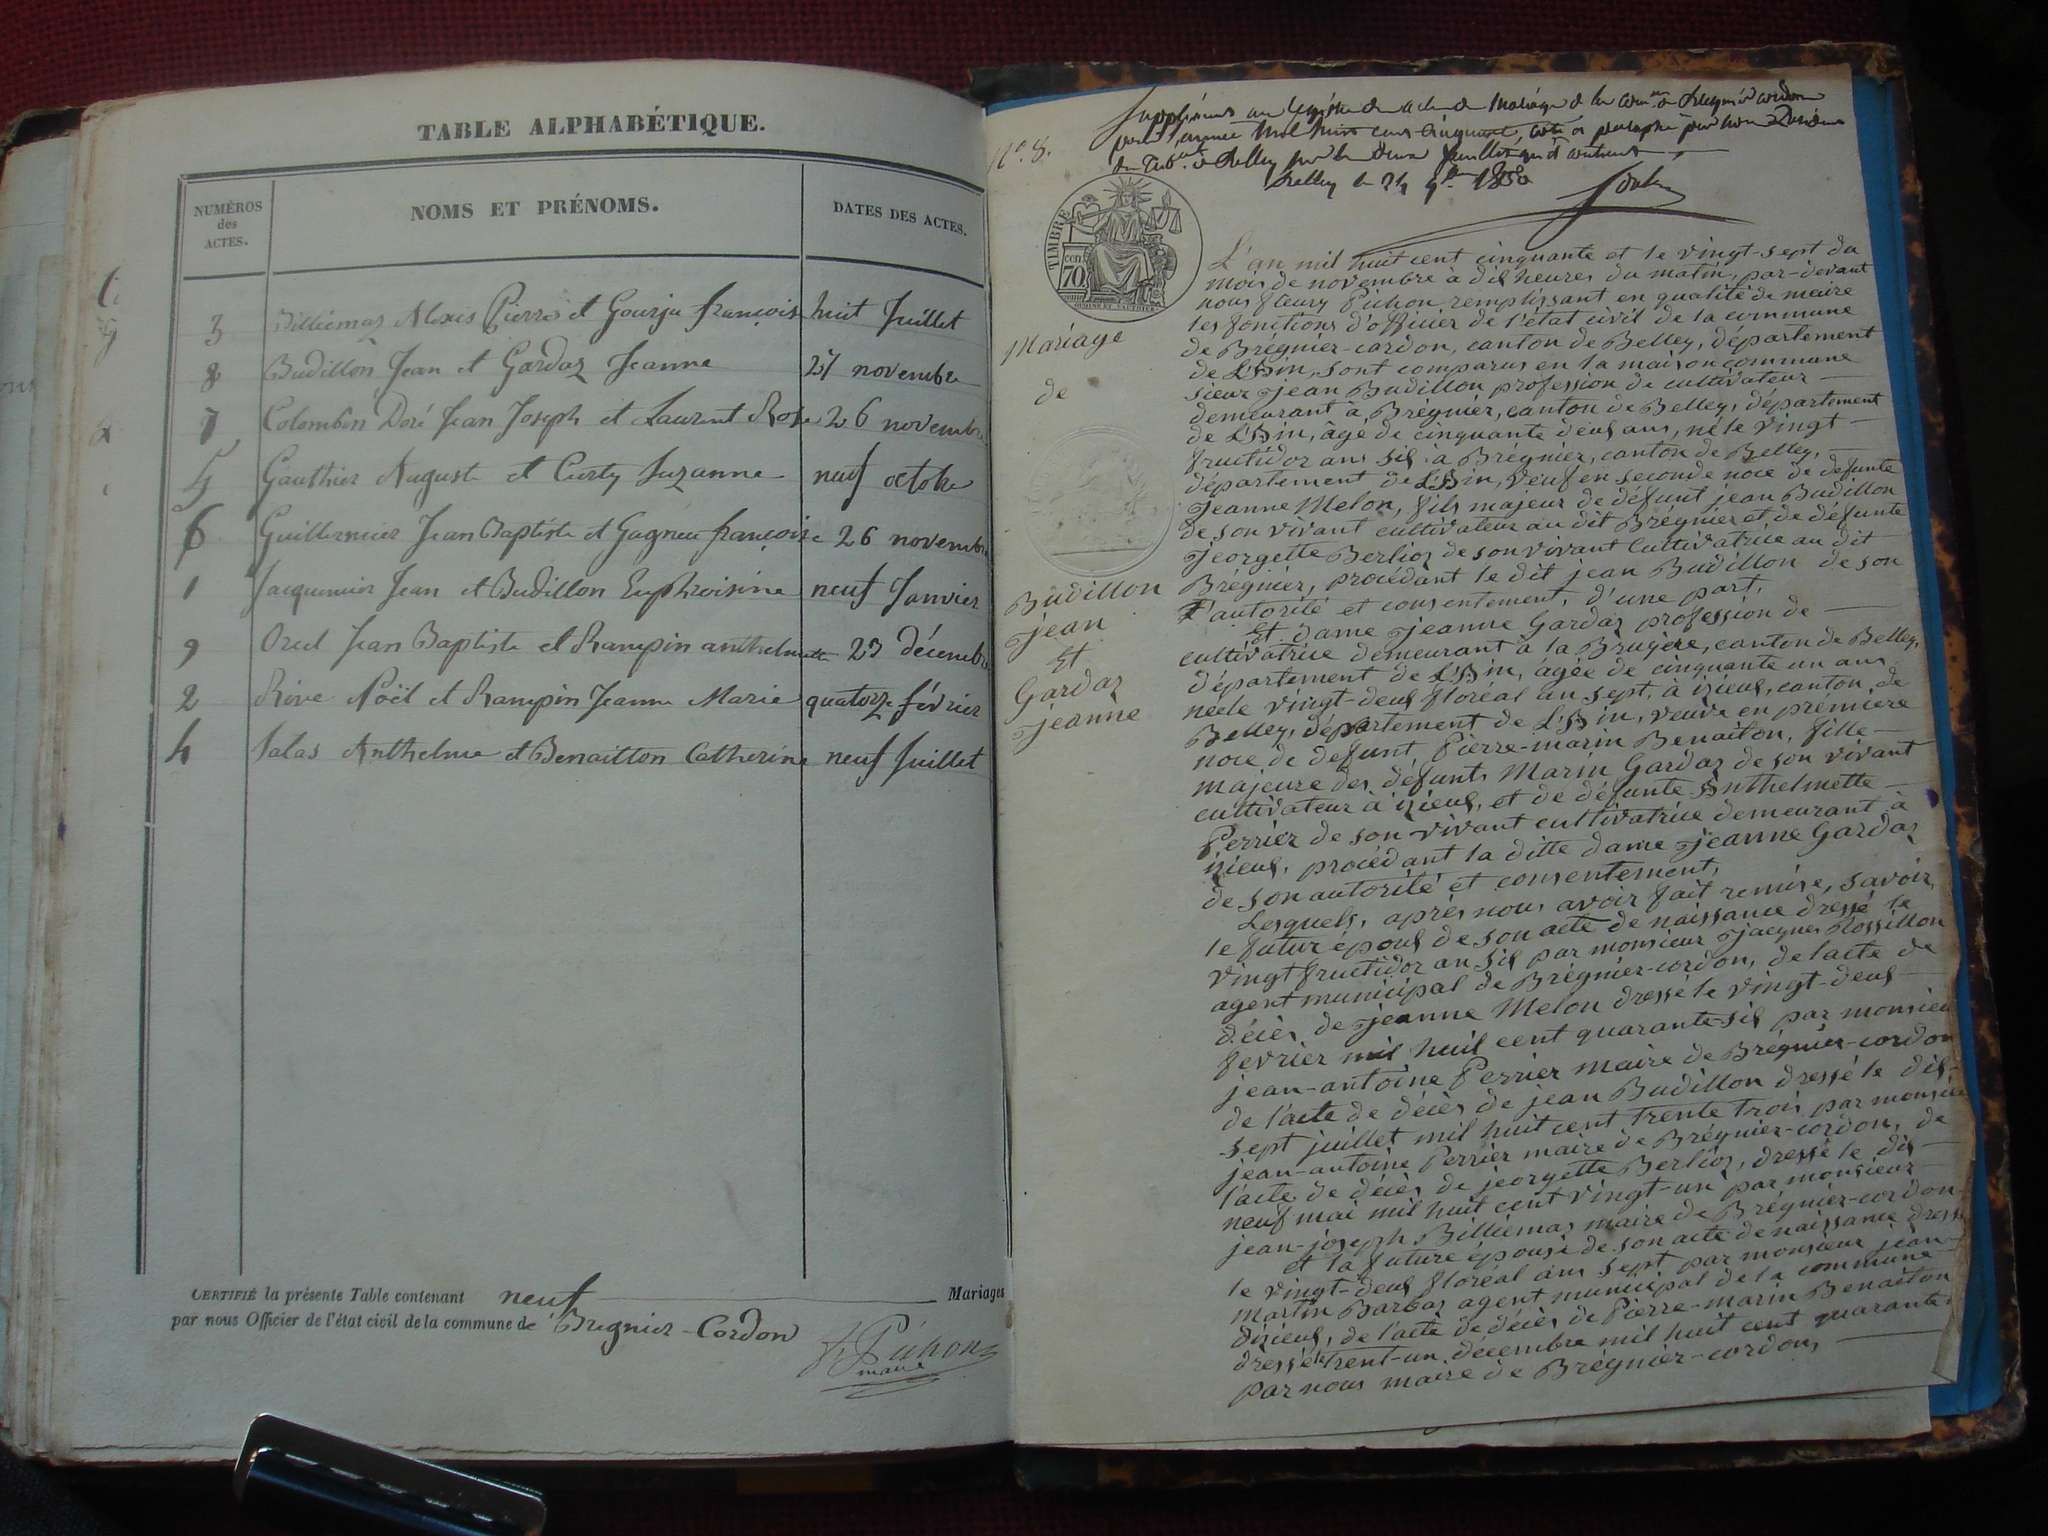 TABLE ALPHABÉTIQUE.
NUMÉROS des ACTES.
NOMS ET PRÉNOMS.
DATES DES ACTES.
3 Billiemaz Alexis Pierre et Gourju françoise huit Juillet
8 Budillon Jean et Gardaz Jeanne 27 novembre
7 Colombin Doré Jean Joseph et Laurent Rose 26 novembre
5 Gauthier Auguste et Curty Suzanne neuf octobre
6 Guillermier Jean Baptiste et Gagneu françoise 26 novembre
1 Jacquemier Jean et Budillon Euphroisine neuf Janvier
9 Orcel Jean Baptiste et Rampin anthelmette 23 décembre
2 Rive Noël et Rampin Jeanne Marie quatorze février
4 Salas Anthelme et Benaitton Catherine neuf Juillet
CERTIFIÉ la présente Table contenant neuf Mariages
par nous Officier de l'état civil de la commune de Brégnier-Cordon
F. Pichon
maire
Nº 8.
Supplément au registre de acte de Mariage de la Comne de Bregnier cordon
pour l'année Mil huit cent cinquante, coté et paraphé par nous
du Tribal de Belley pour les deux feuillets qu'il contient
Belley le 24 9bre 1850
TIMBRE
70 cen
Mariage
de
Budillon
jean
Et
Gardaz
jeanne
L'an mil huit cent cinquante et le vingt-sept du
mois de novembre à dix heures du matin, par-devant
nous fleury Pichon remplissant en qualité de maire
les fonctions d'officier de l'état civil de la commune
de Brégnier-cordon, canton de Belley, département
de L'Ain, sont comparus en la maison commune
sieur jean Budillon profession de cultivateur
demeurant à Brégnier, canton de Belley, département
de L'Ain, âgé de cinquante deux ans, né le vingt
fructidor ans six à Brégnier, canton de Belley,
département de L'Ain, veuf en seconde noce de défunte
jeanne Melon, fils majeur de défunt jean Budillon
de son vivant cultivateur au dit Brégnier et de défunte
jeorgette Berlioz de son vivant cultivatrice au dit
Brégnier, procédant le dit jean Budillon de son
autorité et consentement, d'une part,
Et dame jeanne Gardaz profession de
cultivatrice demeurant à la Bruyère, canton de Belley,
département de L'Ain, agée de cinquante un ans
née le vingt-deux floréal an sept, à izieux, canton de
Belley, département de L'Ain, veuve en première
noce de defunt Pierre-marin Benaiton, fille
majeure des défunts Marin Gardaz de son vivant
cultivateur à izieux, et de défunte Anthelmette
Perrier de son vivant cultivatrice demeurant à
izieux, procédant la ditte dame jeanne Gardaz
de son autorité et consentement,
Lesquels, après nous avoir fait remise, savoir,
le futur époux de son acte de naissance dressé le
vingt fructidor an six par monsieur jacques Rossillon
agent municipal de Brégnier-cordon, de l'acte de
décès de jeanne Melon dressé le vingt-deux
fevrier mil huit cent quarante-six par monsieur
jean-antoine Perrier maire de Brégnier-cordon
de l'acte de décès de jean Budillon dressé le dix-
sept juillet mil huit cent trente trois par monsieur
jean-antoine Perrier maire de Brégnier-cordon, de
l'acte de décès de jeorgette Berlioz, dressé le dix
neuf mai mil huit cent vingt-un par monsieur
jean-joseph Billiemaz maire de Brégnier-cordon
et la future épouse de son acte de naissance dressé
le vingt-deux floréal ans sept par monsieur jean-
martin Barbaz agent municipal de la commune
dizieux, de l'acte de décès de Pierre-marin Benaiton
dressé le trent-un décembre mil huit cent quarante
par nous maire de Brégnier-cordon,